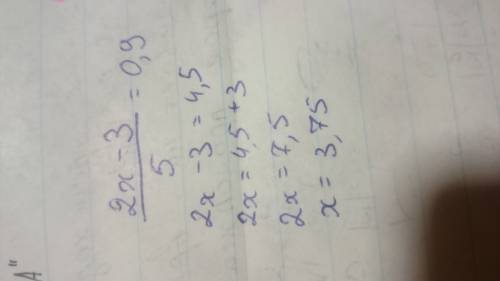 А"
(2x - 3)/5 = 0,9
2x - 3 = 4,5
2x = 4,5 + 3
2x = 7,5
x = 3,75